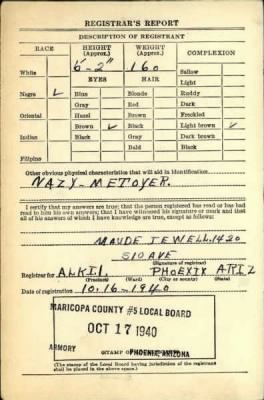 REGISTRAR'S REPORT
DESCRIPTION OF REGISTRANT
RACE HEIGHT (Approx.) WEIGHT (Approx.) COMPLEXION
White 6-2" 160 Sallow
EYES HAIR Light
Negro ✓ Blue Blonde Ruddy
Gray Red Dark
Oriental Hazel Brown Freckled
Brown ✓ Black Light brown ✓
Indian Black Gray Dark brown
Bald Black
Filipino
Other obvious physical characteristics that will aid in identification
NAZY-METOYER.
I certify that my answers are true; that the person registered has read or has had
read to him his own answers; that I have witnessed his signature or mark and that
all of his answers of which I have knowledge are true, except as follows:
MAUDE JEWELL. 1420
S 10 AVE
(Signature of registrar)
Registrar for ALKIL PHOENIX ARIZ
(Precinct) (Ward) (City or county) (State)
Date of registration 10.16-1940
MARICOPA COUNTY #5 LOCAL BOARD
OCT 17 1940
ARMORY PHOENIX, ARIZONA
(STAMP OF
(The stamp of the Local Board having jurisdiction of the registrant
shall be placed in the above space.)